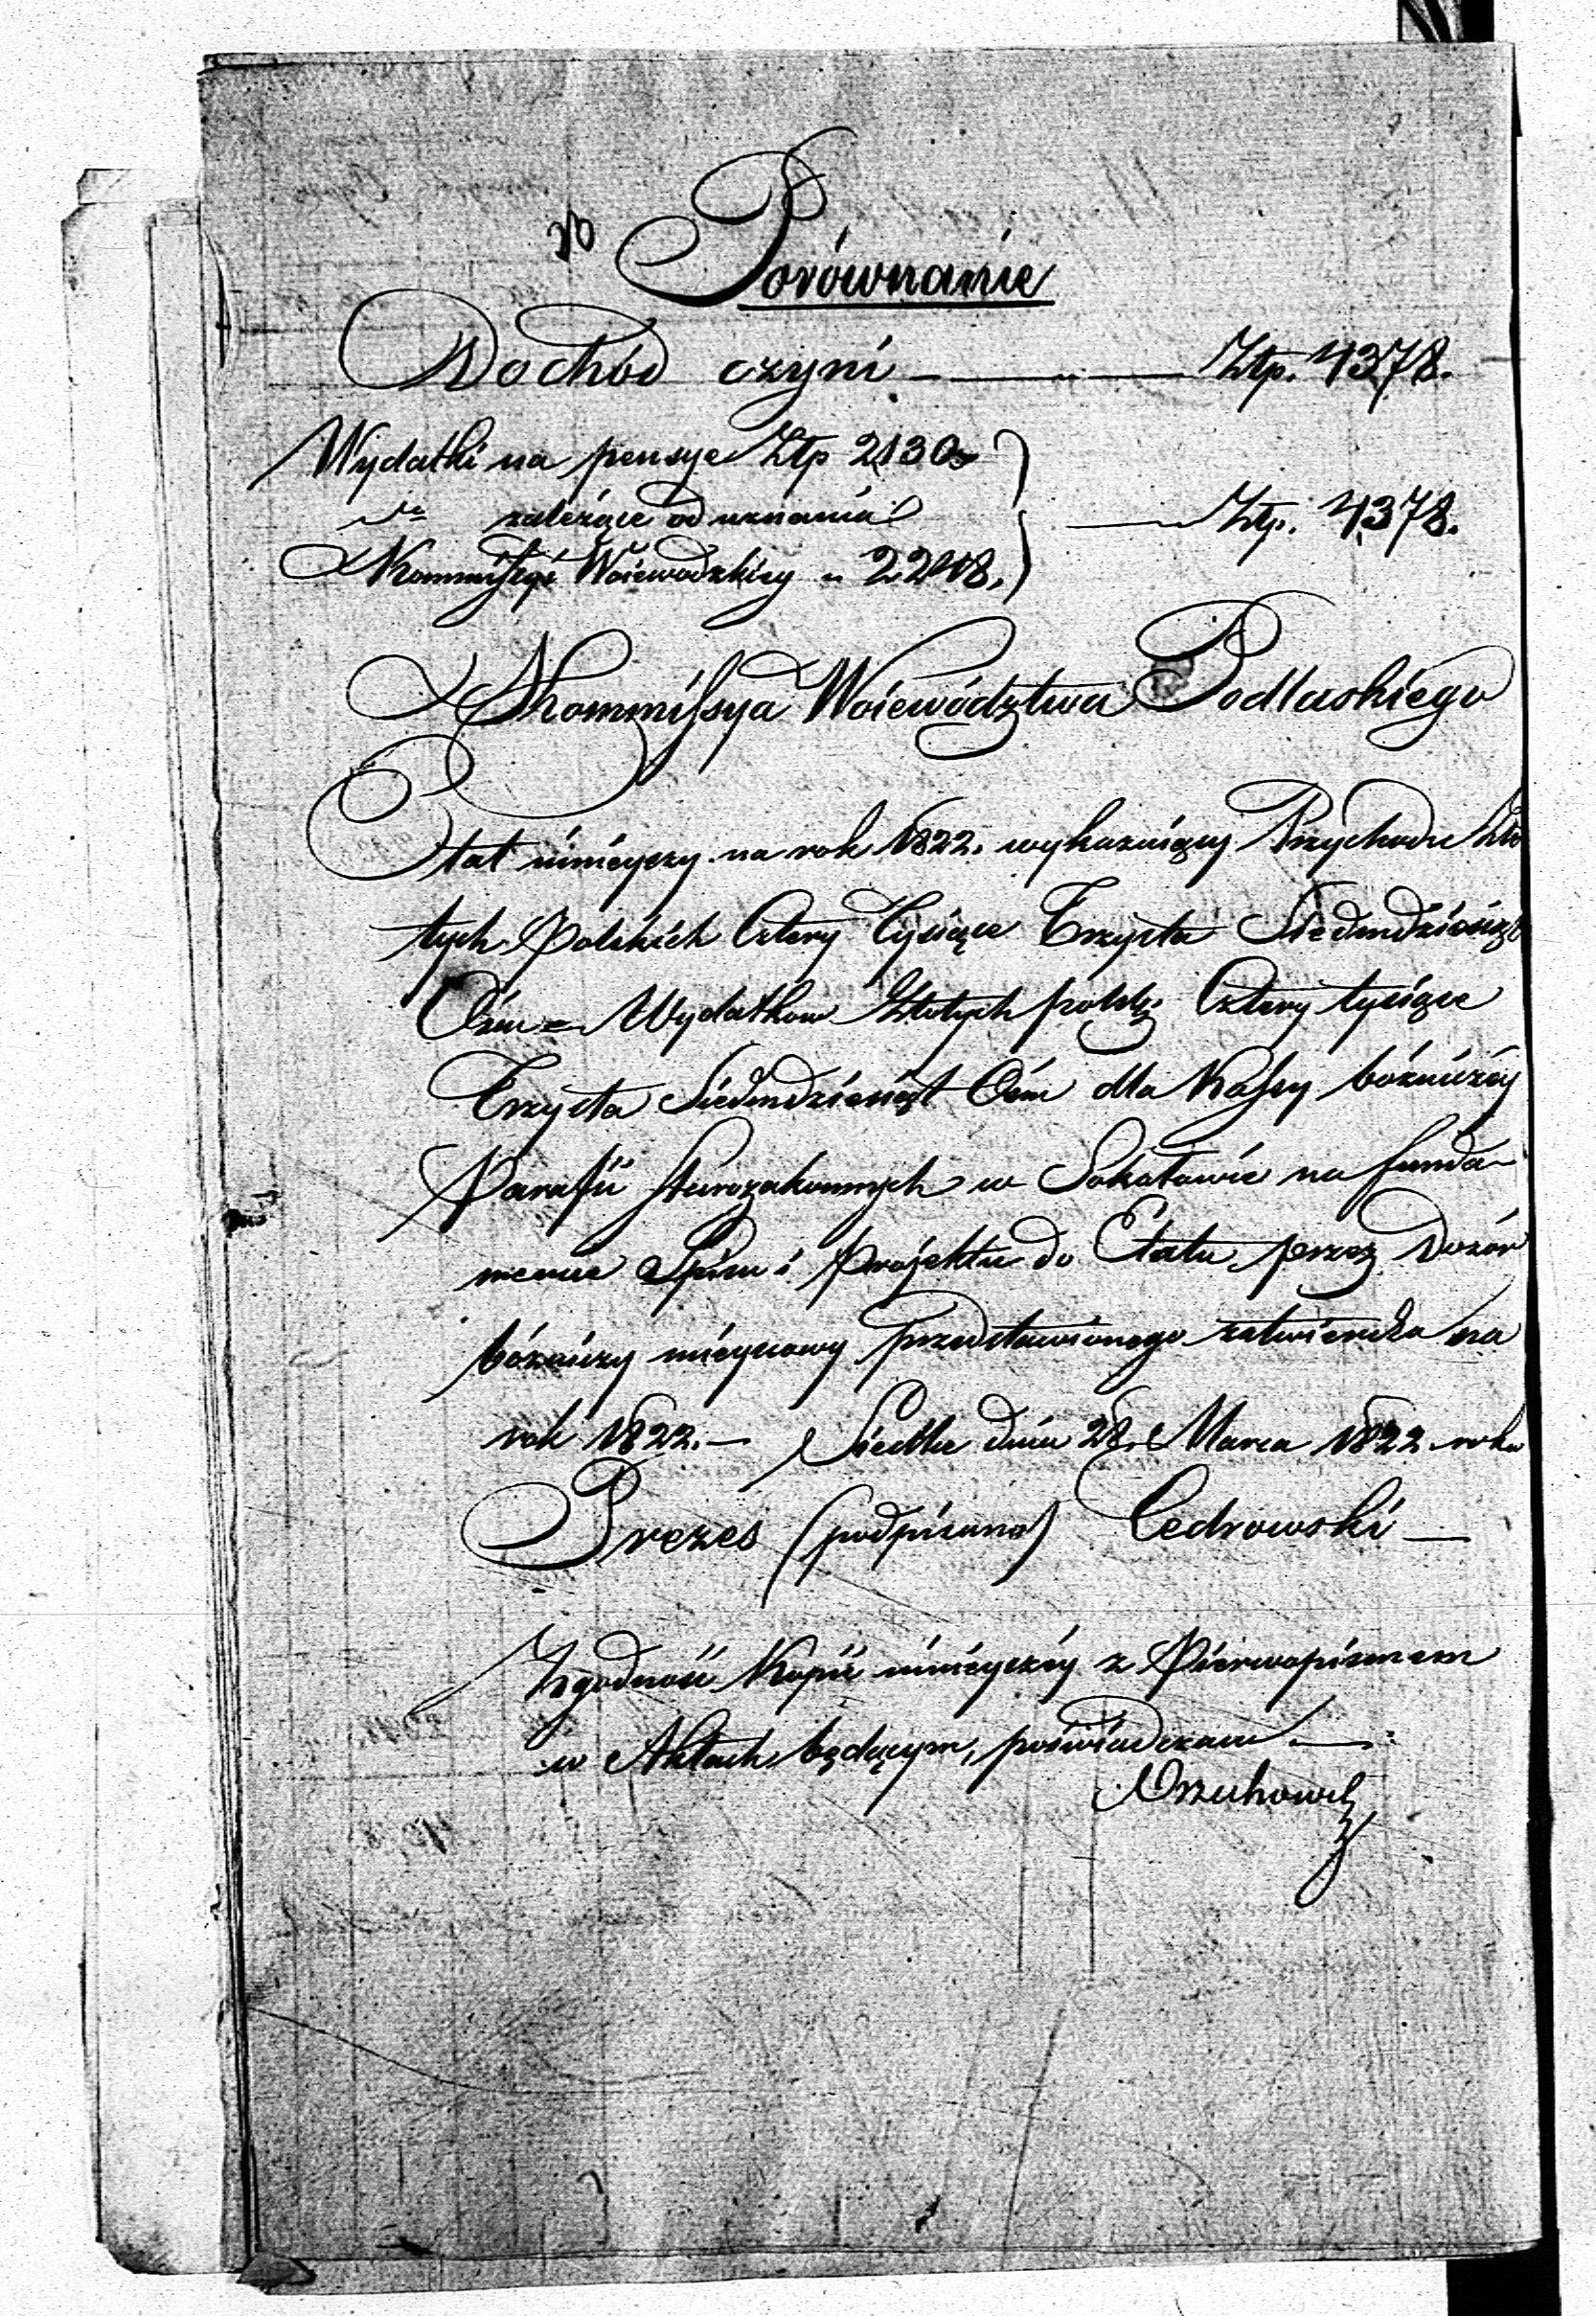 20
Porównanie
Dochód czyni — Złp. 4378.
Wydatki na pensye Złp 2130
zależące od uznania
Kommissyi Woiewodzkiey " 2248.
Złp. 4378.
Kommissya Woiewództwa Podlaskiego
Etat ninieyszy na rok 1822. wykazuiący Przychodu Zło
tych Polskich Cztery Tysiące Trzysta Siedmdziesiąt
Ośm — Wydatkow Złotych polsk. Cztery tysiące
Trzysta Siedmdziesiąt Ośm dla Kassy bóżniczey
Parafii Starozakonnych w Sokołowie na funda-
mencie Spisu i Projektu do Etatu przez Dozór
bóżniczy mieyscowy przedstawionego zatwierdza na
rok 1822. — Siedlce dnia 28. Marca 1822 roku
Prezes (podpisano) Cedrowski —
Zgodność Kopii ninieyszéy z Pierwopismem
w Aktach będącym, poświadczam —